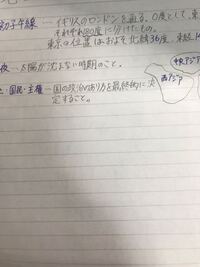 初子午線 ― イギリスのロンドンを通る。0度として、東
それぞれ180度に分けたもの。
東京の位置はおよそ北緯36度、東経14
夜 ― 太陽が沈まない時期のこと。
中央アジア
西アジア
・国民・主権 ― 国の政治のあり方を最終的に決
定すること。